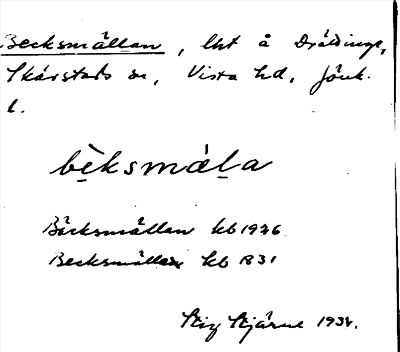 Becksmällan, lht å Drättinge,
Skärstads sn, Vista hd, Jönk.
l.
bèksmäla
Bäcksmällan kb 1926
Becksmällan kb 1831
Stig Stjärne 1934.